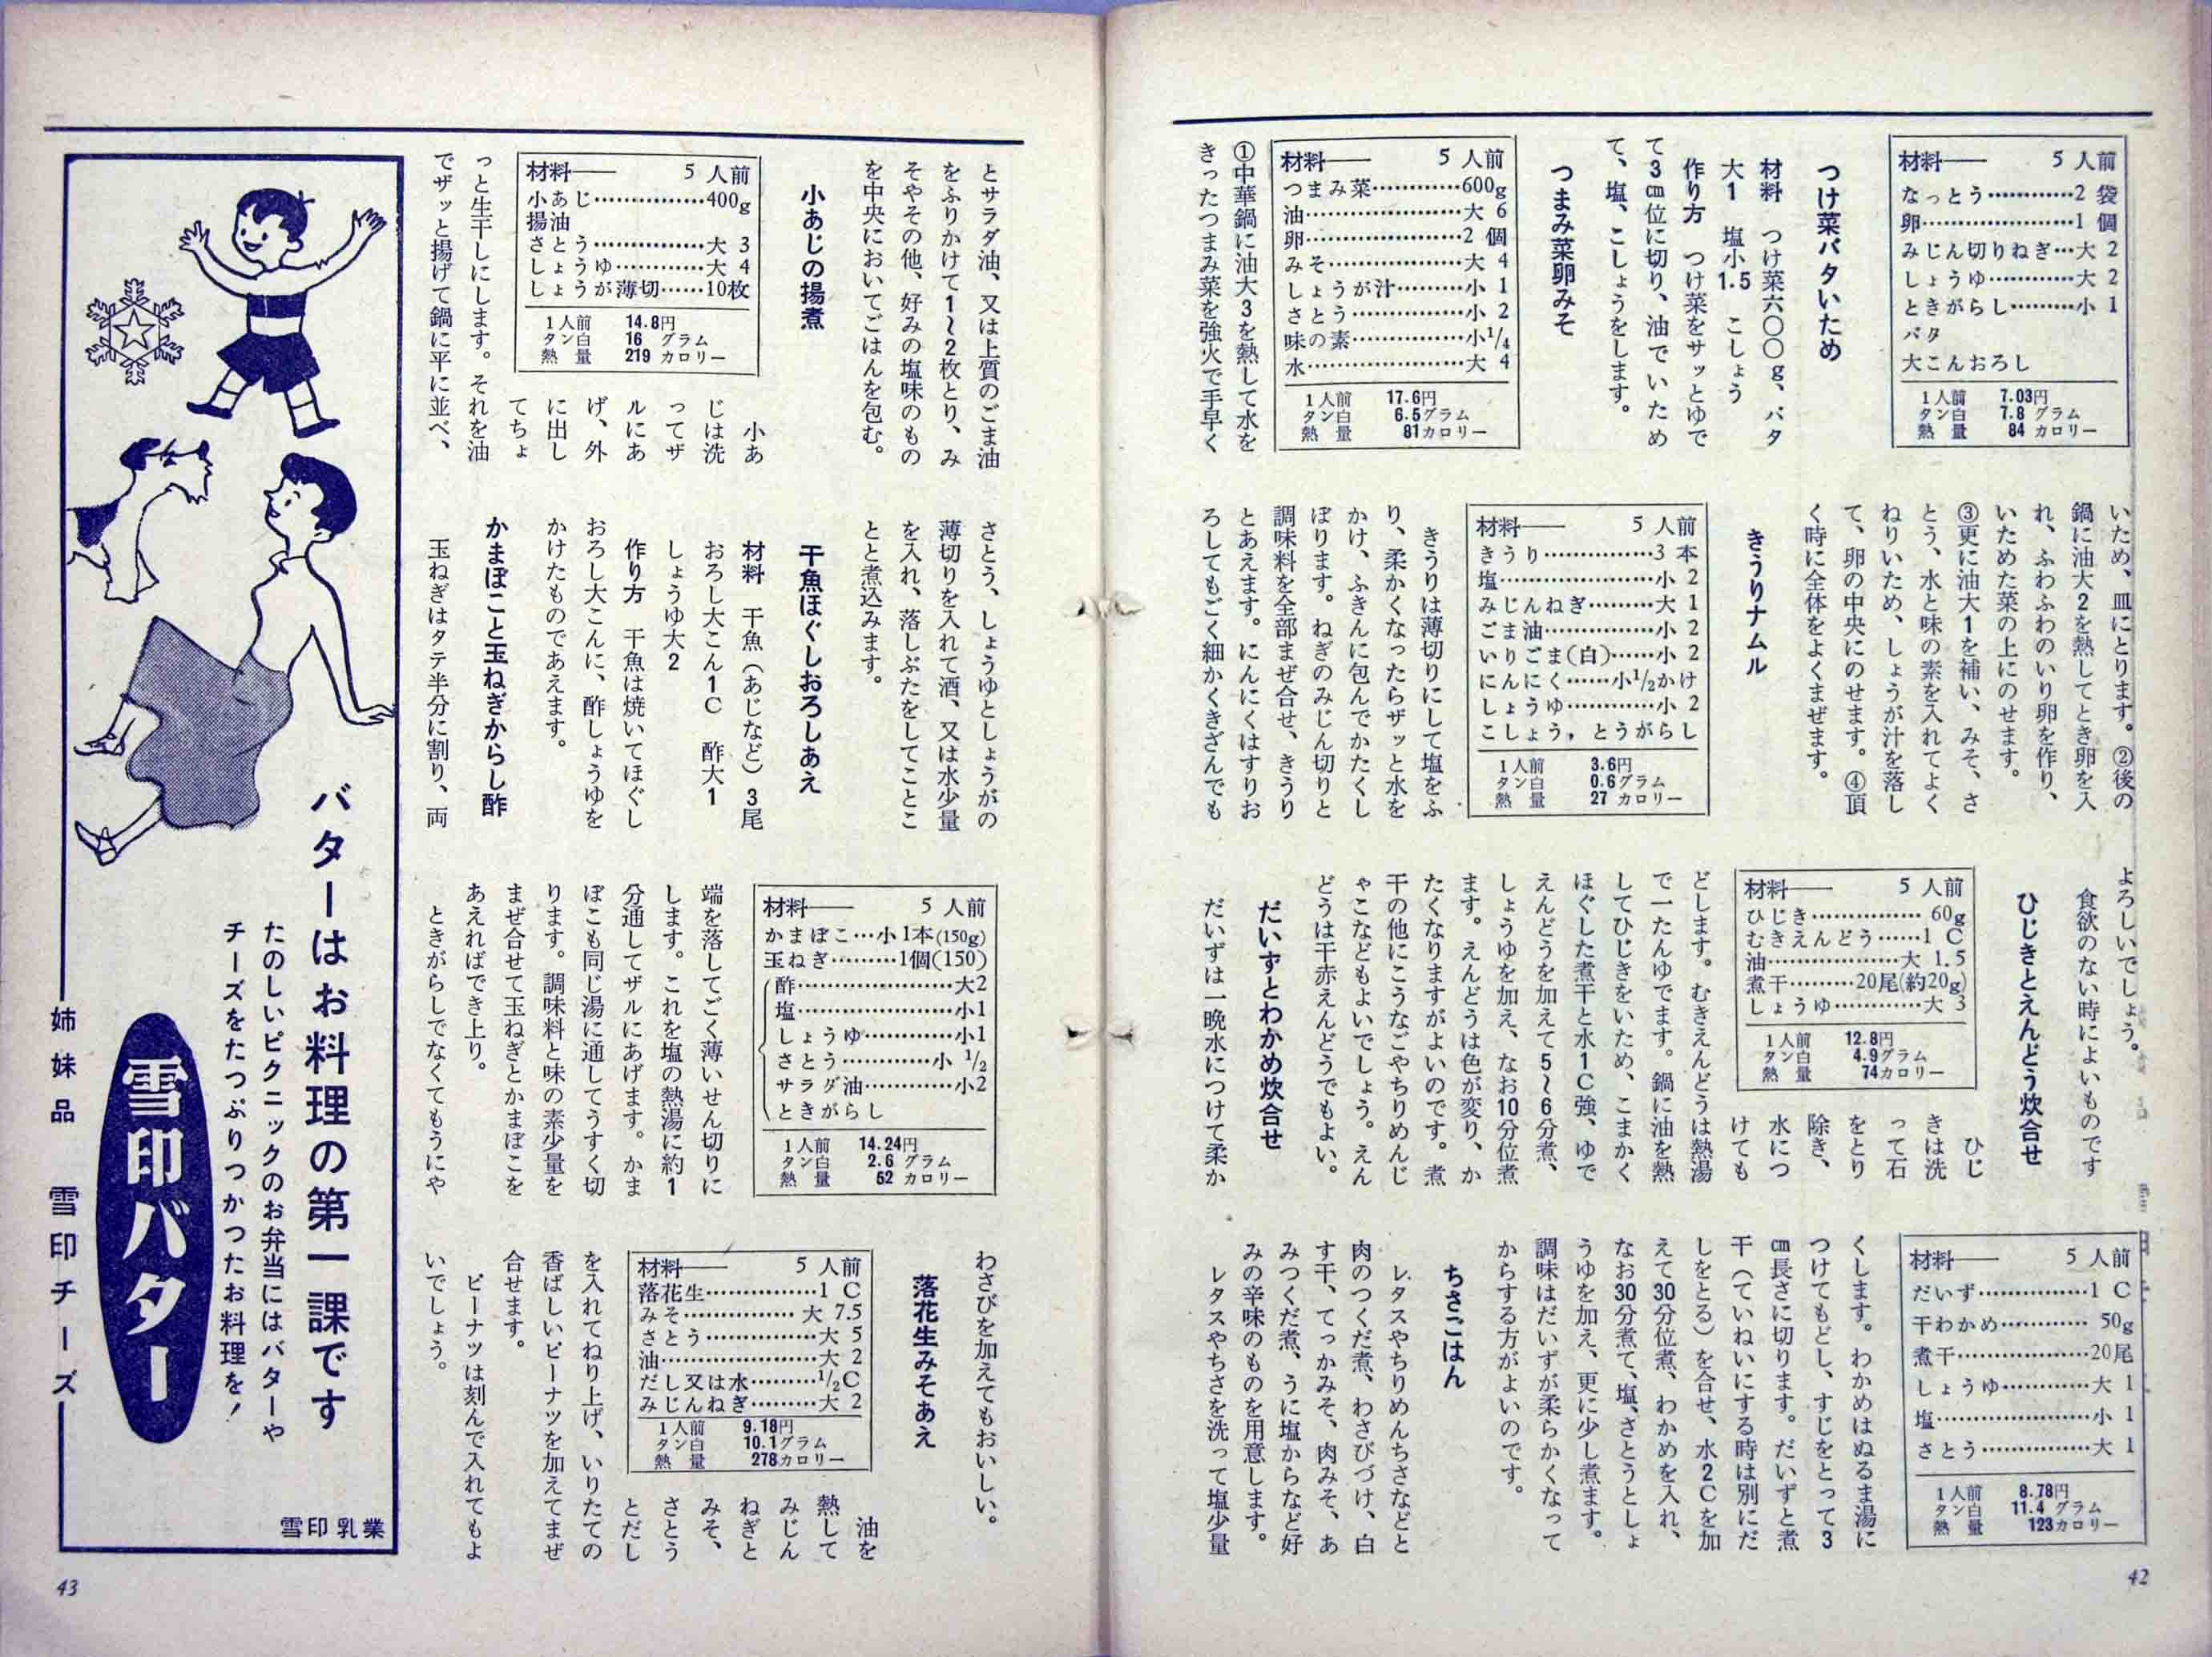 材料―― 5人前
なっとう…………2 袋
卵…………………1 個
みじん切りねぎ…大 2
しょうゆ…………大 2
ときがらし………小 1
バタ
大こんおろし
1人前 7.03円
タン白 7.8 グラム
熱量 84 カロリー
つけ菜バタいため
材料 つけ菜六〇〇g、バタ
大1 塩小1.5 こしょう
作り方 つけ菜をサッとゆで
て3㎝位に切り、油でいため
て、塩、こしょうをします。
つまみ菜卵みそ
材料―― 5人前
つまみ菜…………600g
油…………………大 6
卵…………………2 個
みそ………………大 4
しょうが汁………小 1
さとう……………小 2
味の素……………小1/4
水…………………大 4
1人前 17.6円
タン白 6.5グラム
熱量 81カロリー
①中華鍋に油大3を熱して水を
きったつまみ菜を強火で手早く
いため、皿にとります。②後の
鍋に油大2を熱してとき卵を入
れ、ふわふわのいり卵を作り、
いためた菜の上にのせます。
③更に油大1を補い、みそ、さ
とう、水と味の素を入れてよく
ねりいため、しょうが汁を落し
て、卵の中央にのせます。④頂
く時に全体をよくまぜます。
きうりナムル
材料―― 5人前
きうり……………3 本
塩…………………小 2
みじんねぎ………大 1
ごま油……………小 2
いりごま(白)……小 2
にんにく……小1/2かけ
しょうゆ…………小 2
こしょう，とうがらし
1人前 3.6円
タン白 0.6グラム
熱量 27 カロリー
きうりは薄切りにして塩をふ
り、柔かくなったらザッと水を
かけ、ふきんに包んでかたくし
ぼります。ねぎのみじん切りと
調味料を全部まぜ合せ、きうり
とあえます。にんにくはすりお
ろしてもごく細かくきざんでも
よろしいでしょう。
食欲のない時によいものです
ひじきとえんどう炊合せ
材料―― 5人前
ひじき…………… 60g
むきえんどう……1 C
油………………大 1.5
煮干………20尾(約20g)
しょうゆ…………大 3
1人前 12.8円
タン白 4.9グラム
熱量 74カロリー
ひじ
きは洗
って石
をとり
除き、
水につ
けても
どします。むきえんどうは熱湯
で一たんゆでます。鍋に油を熱
してひじきをいため、こまかく
ほぐした煮干と水1C強、ゆで
えんどうを加えて5〜6分煮、
しょうゆを加え、なお10分位煮
ます。えんどうは色が変り、か
たくなりますがよいのです。煮
干の他にこうなごやちりめんじ
ゃこなどもよいでしょう。えん
どうは干赤えんどうでもよい。
だいずとわかめ炊合せ
だいずは一晩水につけて柔か
材料―― 5人前
だいず……………1 C
干わかめ………… 50g
煮干………………20尾
しょうゆ…………大 1
塩…………………小 1
さとう……………大 1
1人前 8.78円
タン白 11.4 グラム
熱量 123カロリー
くします。わかめはぬるま湯に
つけてもどし、すじをとって3
㎝長さに切ります。だいずと煮
干（ていねいにする時は別にだ
しをとる）を合せ、水2Cを加
えて30分位煮、わかめを入れ、
なお30分煮て、塩、さとうとしょ
うゆを加え、更に少し煮ます。
調味はだいずが柔らかくなって
からする方がよいのです。
ちさごはん
レタスやちりめんちさなどと
肉のつくだ煮、わさびづけ、白
す干、てっかみそ、肉みそ、あ
みつくだ煮、うに塩からなど好
みの辛味のものを用意します。
レタスやちさを洗って塩少量
42
とサラダ油、又は上質のごま油
をふりかけて1〜2枚とり、み
そやその他、好みの塩味のもの
を中央においてごはんを包む。
小あじの揚煮
材料―― 5人前
小あじ……………400g
揚油
さとう……………大 3
しょうゆ…………大 4
しょうが薄切……10枚
1人前 14.8円
タン白 16 グラム
熱量 219 カロリー
小あ
じは洗
ってザ
ルにあ
げ、外
に出し
てちょ
っと生干しにします。それを油
でザッと揚げて鍋に平に並べ、
さとう、しょうゆとしょうがの
薄切りを入れて酒、又は水少量
を入れ、落しぶたをしてことこ
とと煮込みます。
干魚ほぐしおろしあえ
材料 干魚（あじなど）3尾
おろし大こん1C 酢大1
しょうゆ大2
作り方 干魚は焼いてほぐし
おろし大こんに、酢しょうゆを
かけたものであえます。
かまぼこと玉ねぎからし酢
玉ねぎはタテ半分に割り、両
材料―― 5人前
かまぼこ…小1本(150g)
玉ねぎ………1個(150)
酢…………………大2
塩…………………小1
しょうゆ…………小1
さとう…………小 1/2
サラダ油…………小2
ときがらし
1人前 14.24円
タン白 2.6 グラム
熱量 52 カロリー
端を落してごく薄いせん切りに
します。これを塩の熱湯に約1
分通してザルにあげます。かま
ぼこも同じ湯に通してうすく切
ります。調味料と味の素少量を
まぜ合せて玉ねぎとかまぼこを
あえればでき上り。
ときがらしでなくてもうにや
わさびを加えてもおいしい。
落花生みそあえ
材料―― 5人前
落花生……………1 C
みそ…………… 大 7.5
さとう……………大 5
油…………………大 2
だし又は水………1/2C
みじんねぎ………大 2
1人前 9.18円
タン白 10.1グラム
熱量 278カロリー
油を
熱して
みじん
ねぎと
みそ、
さとう
とだし
を入れてねり上げ、いりたての
香ばしいピーナツを加えてまぜ
合せます。
ピーナツは刻んで入れてもよ
いでしょう。
バターはお料理の第一課です
たのしいピクニックのお弁当にはバターや
チーズをたつぷりつかつたお料理を！
雪印バター
姉妹品 雪印チーズ
雪印乳業
43